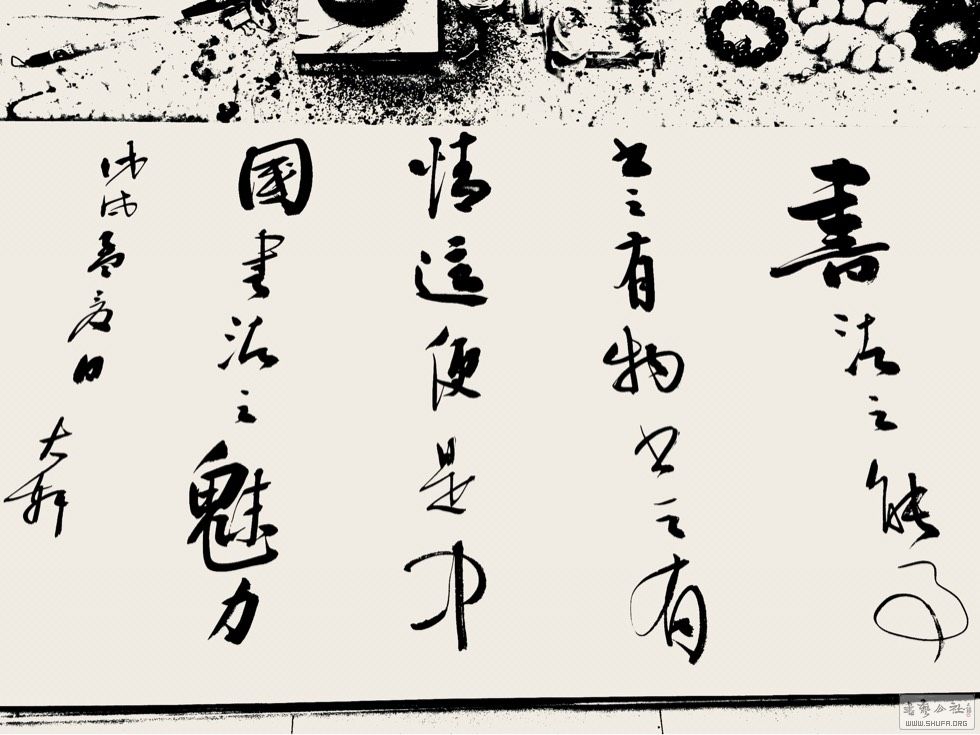 書法之能事
书之有物书之有
情這便是中
國書法之魅力
戊戌孟夏日 大
書藝公社
WWW.SHUFA.ORG